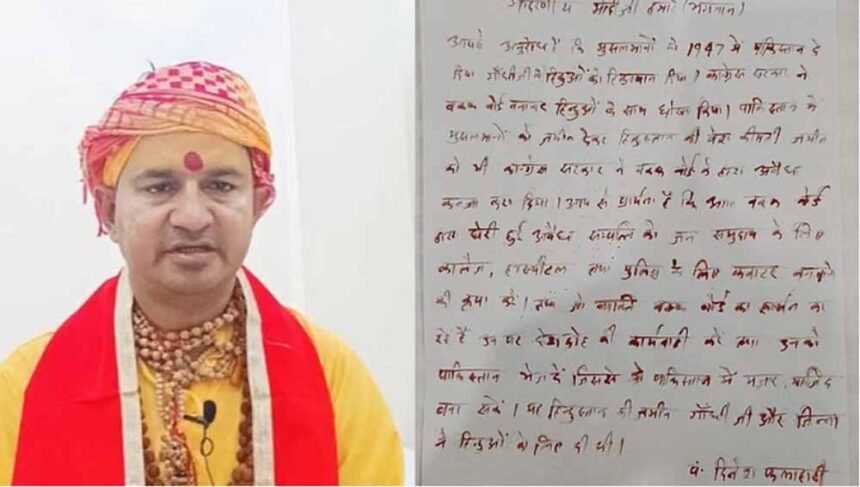 आदरणीय मोदी जी हमारे (भगवान)
आपसे अनुरोध है कि मुसलमानों को 1947 में पाकिस्तान दे
दिया गाँधीजी ने हिन्दुओं को हिन्दुस्तान दिया। कांग्रेस सरकार ने
वक्फ बोर्ड बनाकर हिन्दुओं के साथ धोखा किया। पाकिस्तान में
मुसलमानों को जमीन देकर हिन्दुस्तान की बेश कीमती जमीन
को भी कांग्रेस सरकार ने वक्फ बोर्ड के द्वारा अवैध
कब्जा करा दिया। आप से प्रार्थना है कि आप वक्फ बोर्ड
द्वारा घेरी हुई अवैध सम्पत्ति को जन समुदाय के लिए
कालेज, हास्पीटल तथा पुलिस के लिए क्वाटर बनवाने
की कृपा करें। तथा जो व्यक्ति वक्फ बोर्ड का समर्थन कर
रहे हैं उन पर देशद्रोह की कार्यवाही करें तथा उनको
पाकिस्तान भेज दें जिससे वो पाकिस्तान में मजार, मस्जिद
बना सकें। यह हिन्दुस्तान की जमीन गाँधी जी और जिन्ना
ने हिन्दुओं के लिए दी थी।
पं. दिनेश फलाहारी